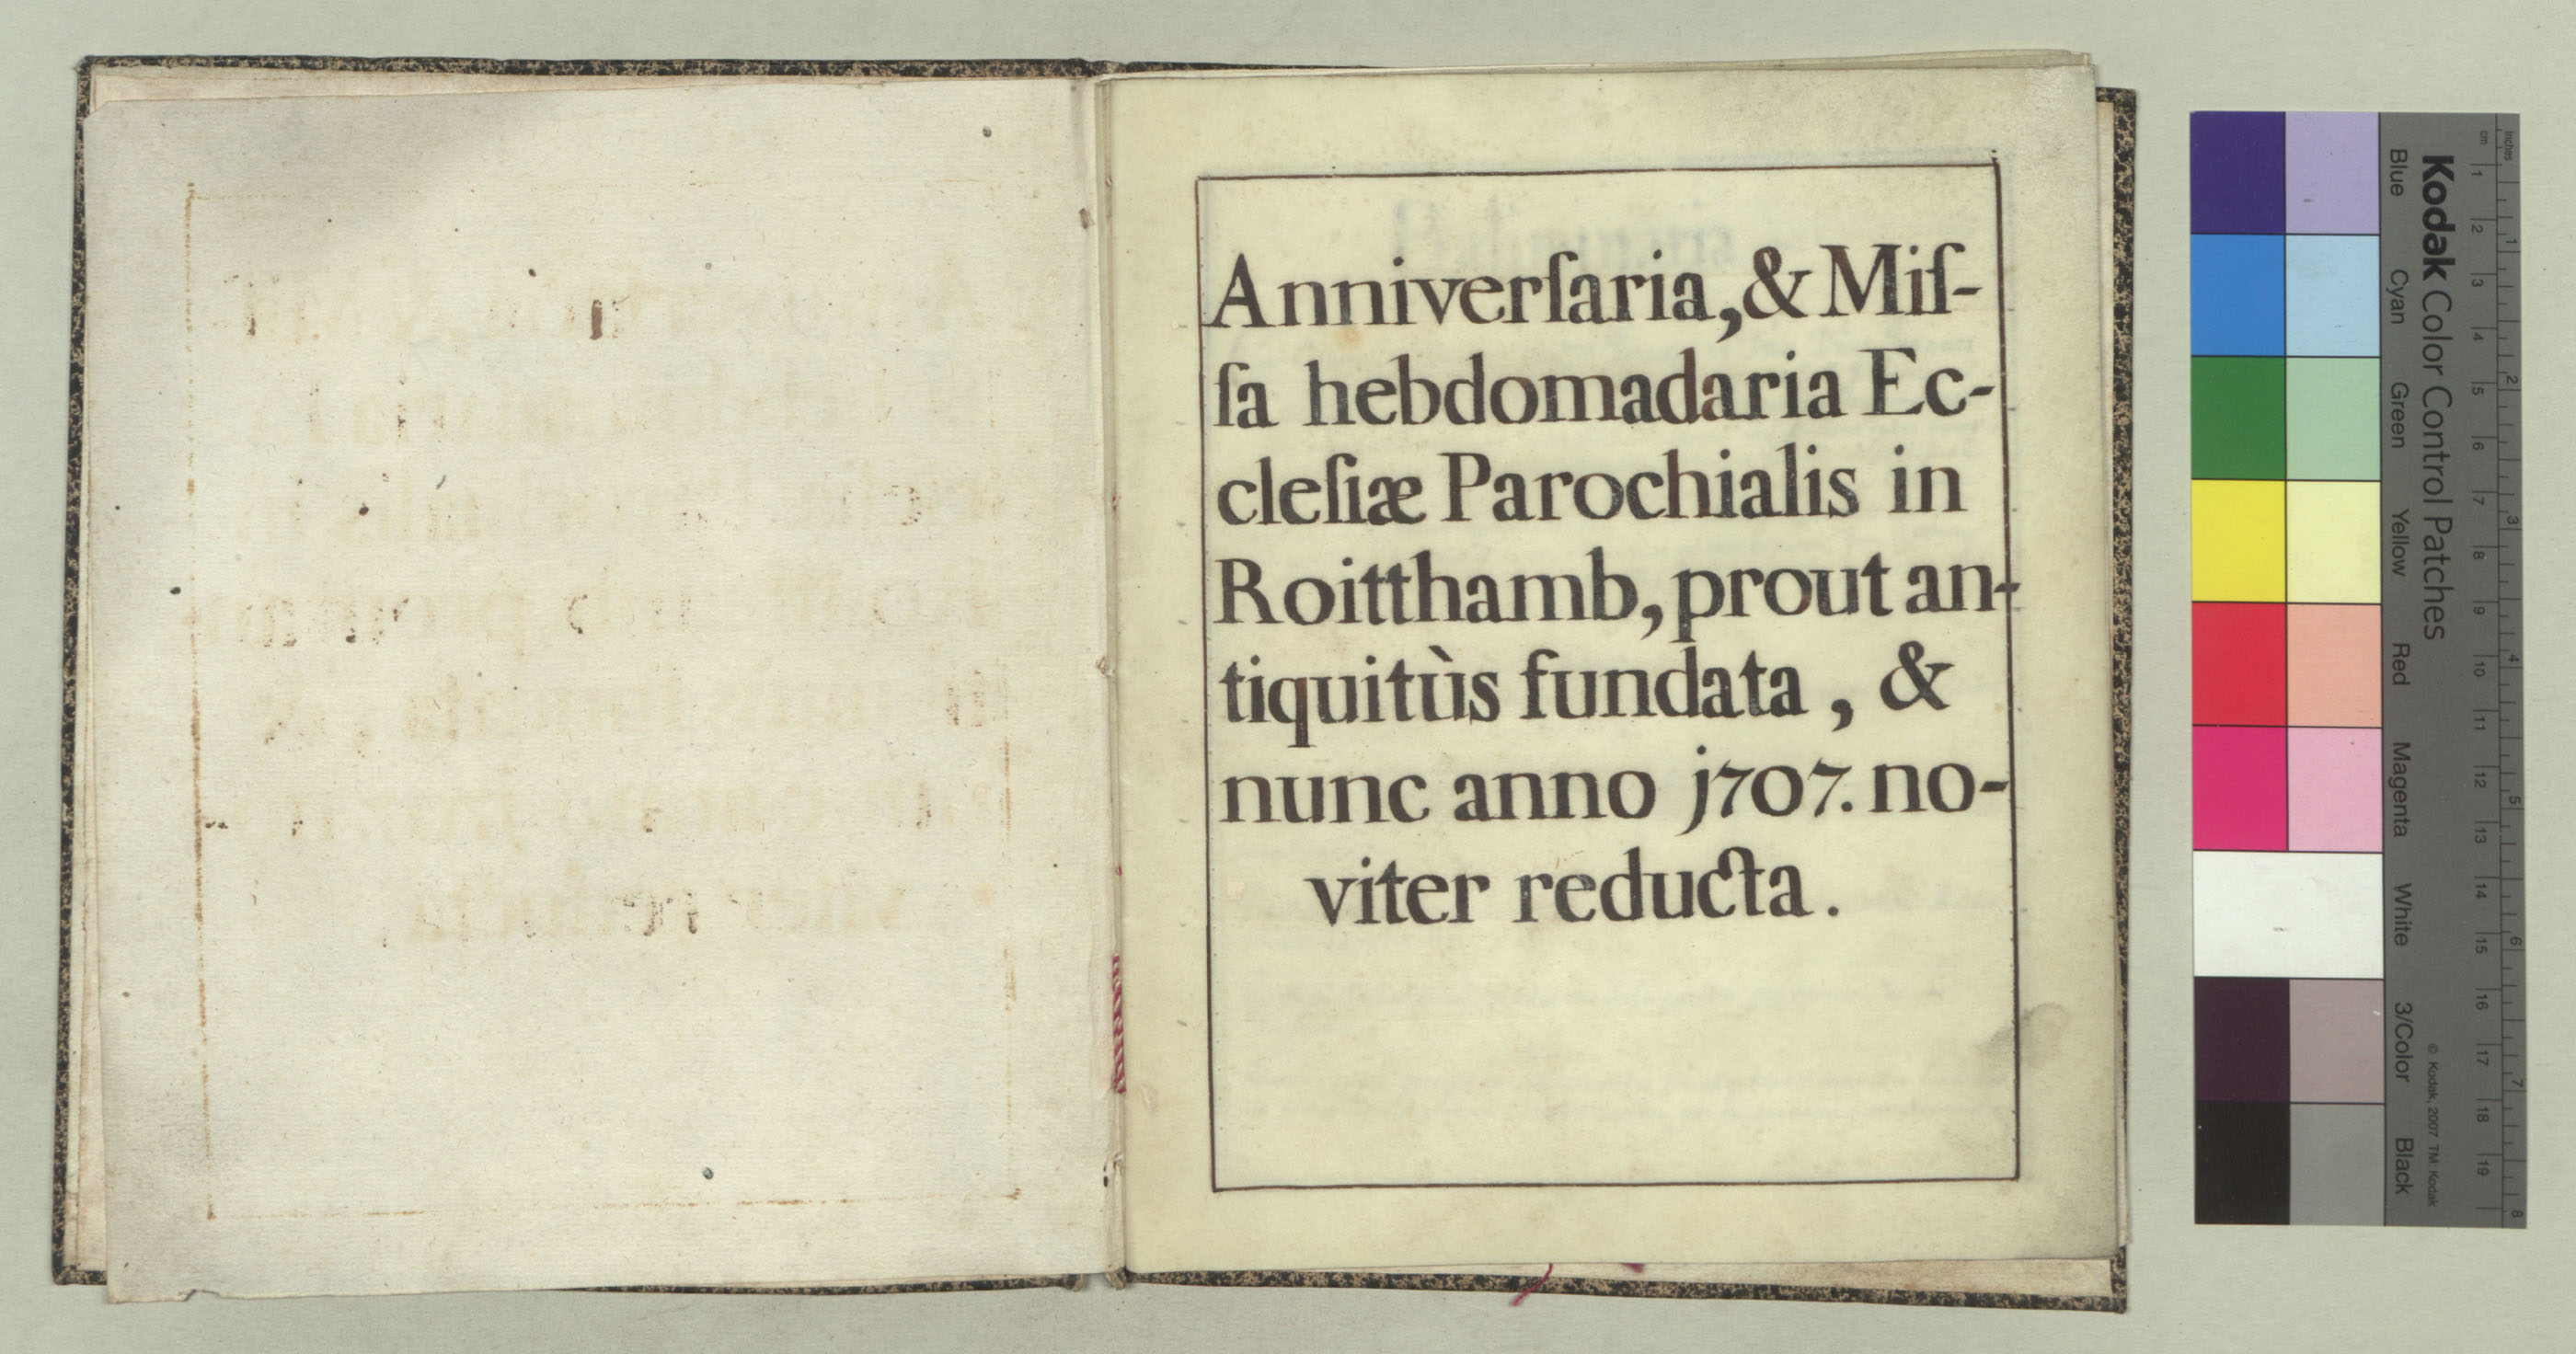 Anniverſaria, & Miſ-
ſa hebdomadaria Ec-
cleſiæ Parochialis in
Roitthamb, prout an-
tiquitùs fundata, &
nunc anno j707. no-
viter reducta.
Kodak Color Control Patches
Blue Cyan Green Yellow Red Magenta White 3/Color Black
© Kodak, 2007 TM: Kodak
cm 1 2 3 4 5 6 7 8 9 10 11 12 13 14 15 16 17 18 19
inches 1 2 3 4 5 6 7 8